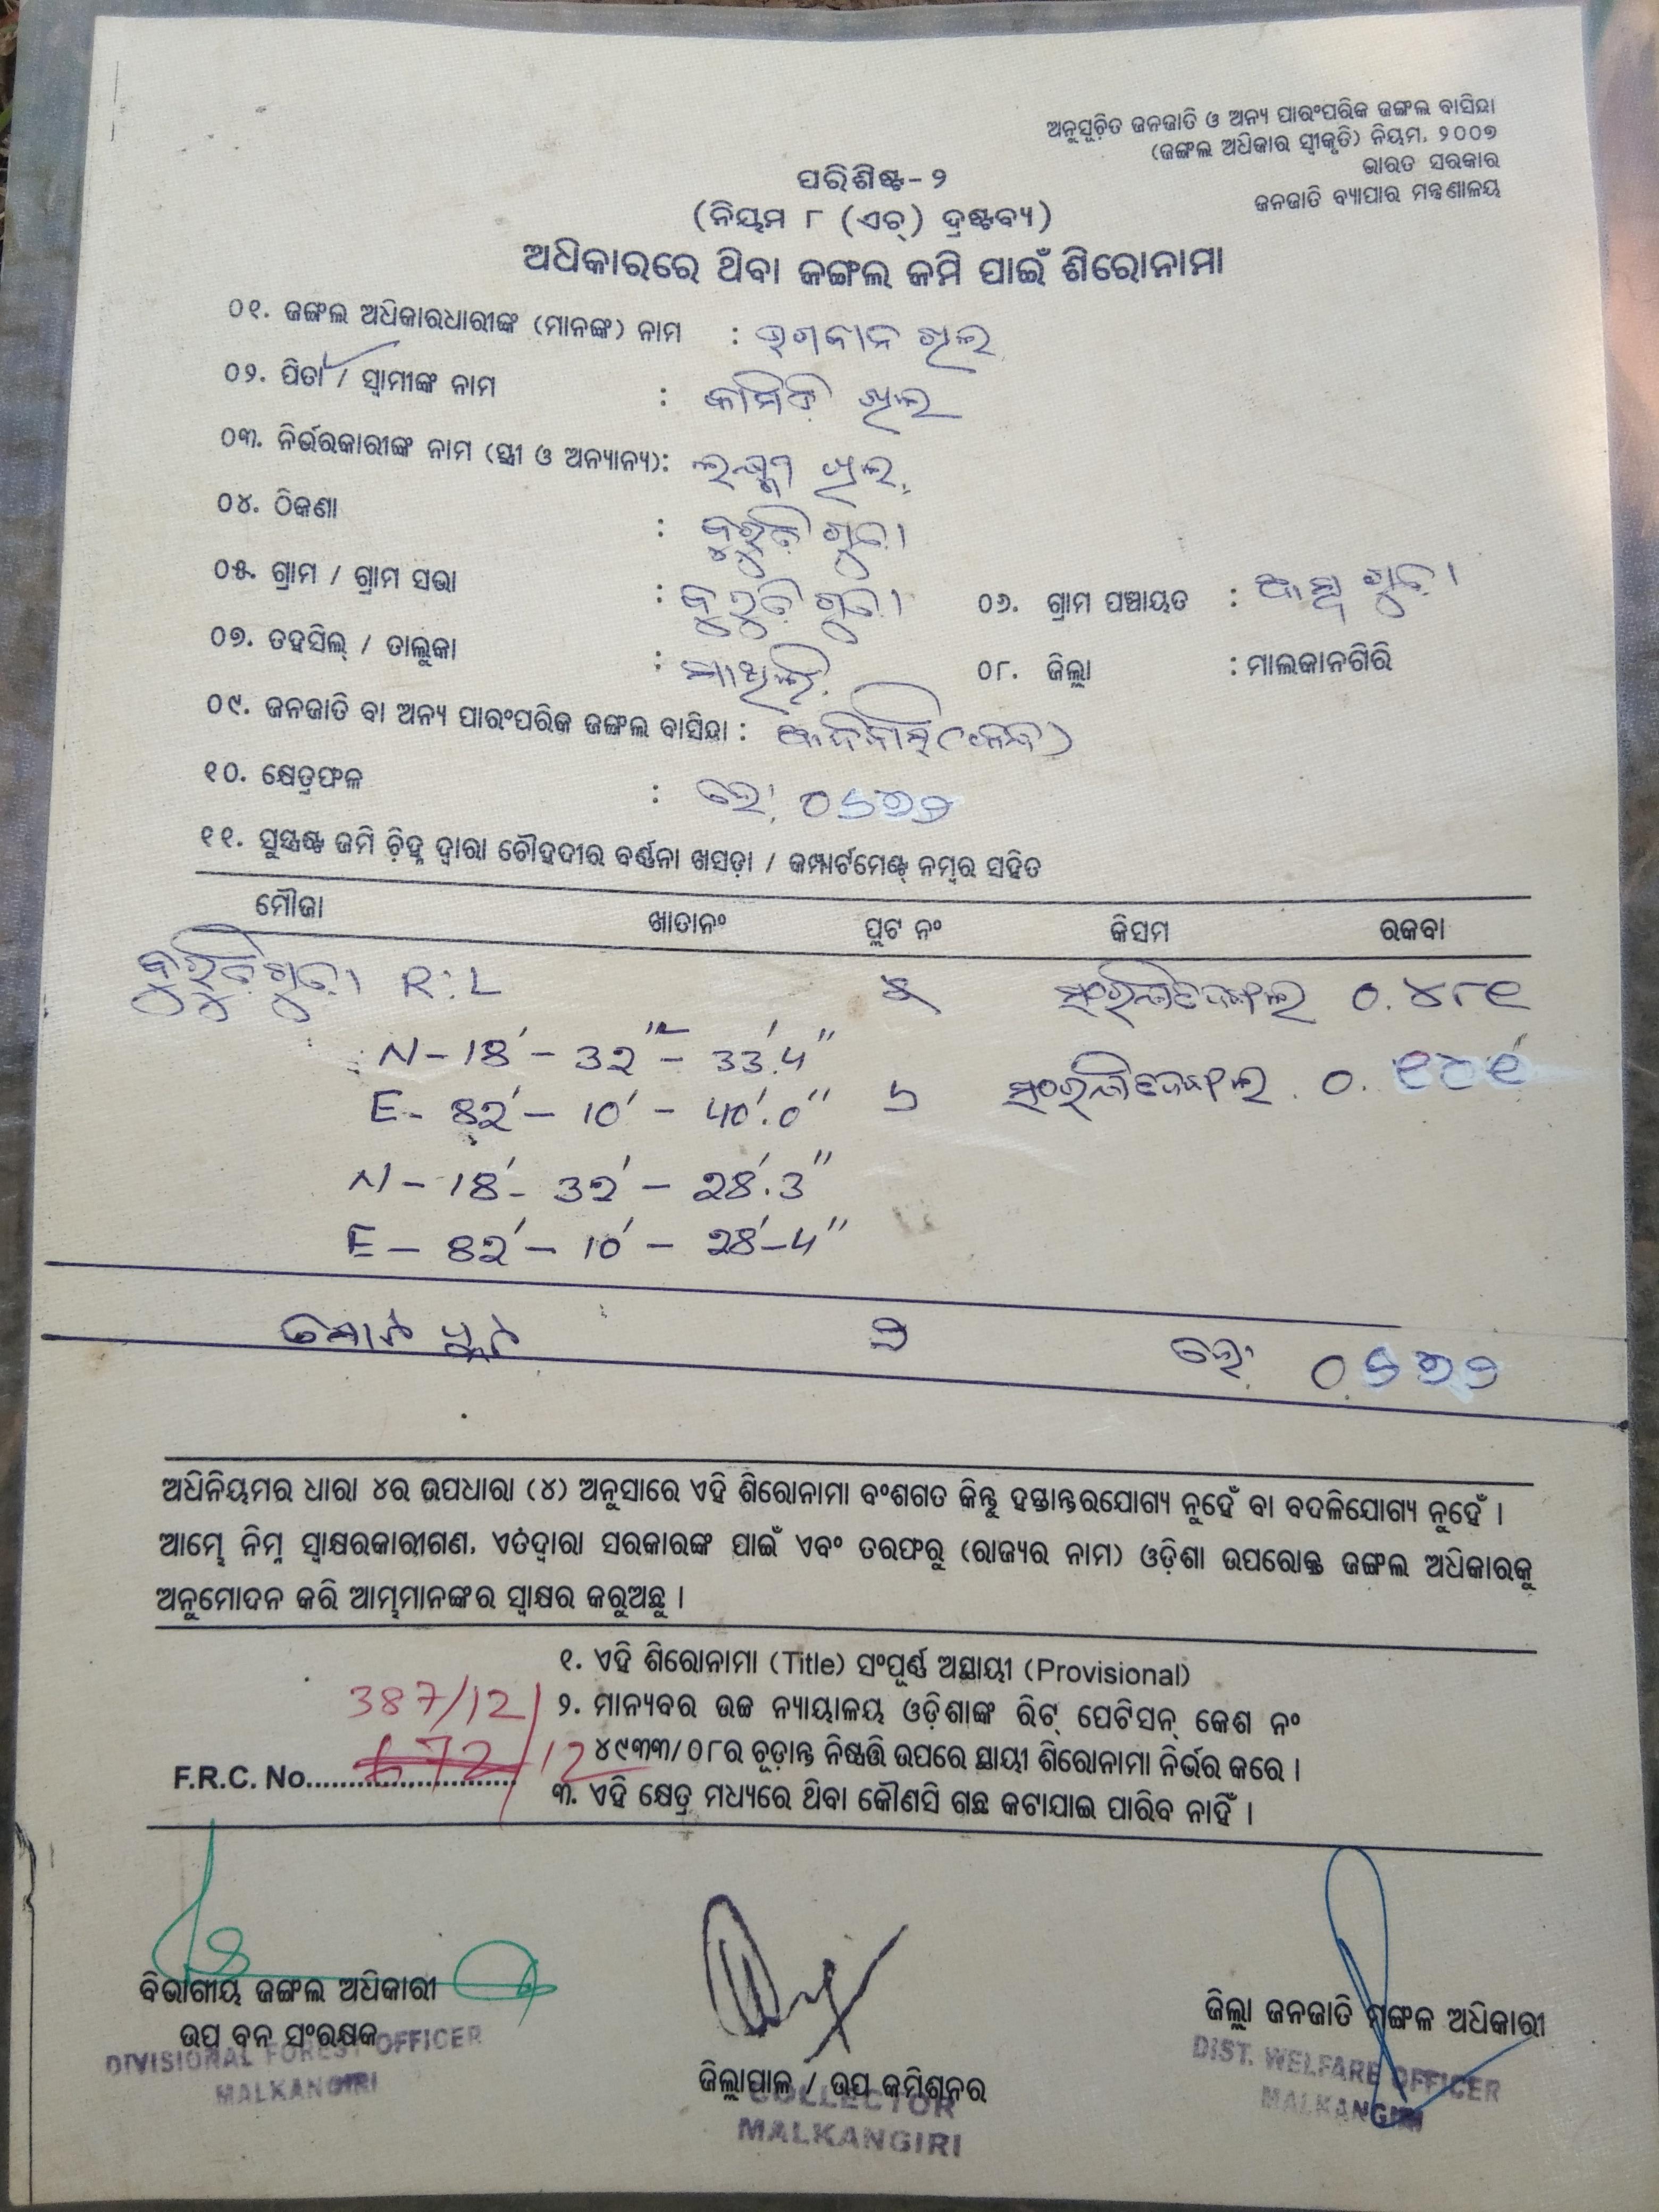 ଅନୁସୂଚିତ ଜନଜାତି ଓ ଅନ୍ୟ ପାରଂପରିକ ଜଙ୍ଗଲ ବାସିନ୍ଦା
(ଜଙ୍ଗଲ ଅଧିକାର ସ୍ୱୀକୃତି) ନିୟମ, ୨୦୦୭
ଭାରତ ସରକାର
ଜନଜାତି ବ୍ୟାପାର ମନ୍ତ୍ରଣାଳୟ
ପରିଶିଷ୍ଟ-୨
(ନିୟମ ୮ (ଏଚ୍) ଦ୍ରଷ୍ଟବ୍ୟ)
ଅଧିକାରରେ ଥିବା ଜଙ୍ଗଲ ଜମି ପାଇଁ ଶିରୋନାମା
୦୧. ଜଙ୍ଗଲ ଅଧିକାରଧାରୀଙ୍କ (ମାନଙ୍କ) ନାମ : ଭଗବାନ ଖିଲ
୦୨. ପିତା / ସ୍ୱାମୀଙ୍କ ନାମ : ଖିଲ
୦୩. ନିର୍ଭରକାରୀଙ୍କ ନାମ (ସ୍ତ୍ରୀ ଓ ଅନ୍ୟାନ୍ୟ): ଖିଲ
୦୪. ଠିକଣା :
୦୫. ଗ୍ରାମ / ଗ୍ରାମ ସଭା : ୦୬. ଗ୍ରାମ ପଞ୍ଚାୟତ :
୦୭. ତହସିଲ୍ / ତାଲୁକା : ମାଥିଲି ୦୮. ଜିଲ୍ଲା : ମାଲକାନଗିରି
୦୯. ଜନଜାତି ବା ଅନ୍ୟ ପାରଂପରିକ ଜଙ୍ଗଲ ବାସିନ୍ଦା : ଆଦିବାସୀ
୧୦. କ୍ଷେତ୍ରଫଳ : ହେ:
୧୧. ସୁସ୍ପଷ୍ଟ ଜମି ଚିହ୍ନ ଦ୍ୱାରା ଚୌହଦୀର ବର୍ଣ୍ଣନା ଖସଡ଼ା / କମ୍ପାର୍ଟମେଣ୍ଟ୍ ନମ୍ବର ସହିତ
ମୌଜା ଖାତାନଂ ପ୍ଲଟ ନଂ କିସମ ରକବା
R.L ୫ 0.୪୮୧
N-18'-32''-33'.4''
E-82'-10'-40'.0'' ୬
N-18'-32'-28'.3''
E-82'-10'-28'-4''
ମୋଟ ପ୍ଲଟ ୨ ହେ:
ଅଧିନିୟମର ଧାରା ୪ର ଉପଧାରା (୪) ଅନୁସାରେ ଏହି ଶିରୋନାମା ବଂଶଗତ କିନ୍ତୁ ହସ୍ତାନ୍ତରଯୋଗ୍ୟ ନୁହେଁ ବା ବଦଳିଯୋଗ୍ୟ ନୁହେଁ ।
ଆମ୍ଭେ ନିମ୍ନ ସ୍ୱାକ୍ଷରକାରୀଗଣ, ଏତଦ୍ୱାରା ସରକାରଙ୍କ ପାଇଁ ଏବଂ ତରଫରୁ (ରାଜ୍ୟର ନାମ) ଓଡ଼ିଶା ଉପରୋକ୍ତ ଜଙ୍ଗଲ ଅଧିକାରକୁ
ଅନୁମୋଦନ କରି ଆମ୍ଭମାନଙ୍କର ସ୍ୱାକ୍ଷର କରୁଅଛୁ ।
୧. ଏହି ଶିରୋନାମା (Title) ସଂପୂର୍ଣ୍ଣ ଅସ୍ଥାୟୀ (Provisional)
387/12
୨. ମାନ୍ୟବର ଉଚ୍ଚ ନ୍ୟାୟାଳୟ ଓଡ଼ିଶାଙ୍କ ରିଟ୍ ପେଟିସନ୍ କେଶ ନଂ
୪୯୩୩/୦୮ର ଚୂଡ଼ାନ୍ତ ନିଷ୍ପତ୍ତି ଉପରେ ସ୍ଥାୟୀ ଶିରୋନାମା ନିର୍ଭର କରେ ।
F.R.C. No. 672/12
୩. ଏହି କ୍ଷେତ୍ର ମଧ୍ୟରେ ଥିବା କୌଣସି ଗଛ କଟାଯାଇ ପାରିବ ନାହିଁ ।
ବିଭାଗୀୟ ଜଙ୍ଗଲ ଅଧିକାରୀ
ଉପ ବନ ସଂରକ୍ଷକ
DIVISIONAL FOREST OFFICER
MALKANGIRI
ଜିଲ୍ଲାପାଳ / ଉପ କମିଶନର
COLLECTOR
MALKANGIRI
ଜିଲ୍ଲା ଜନଜାତି ମଙ୍ଗଳ ଅଧିକାରୀ
DIST. WELFARE OFFICER
MALKANGIRI